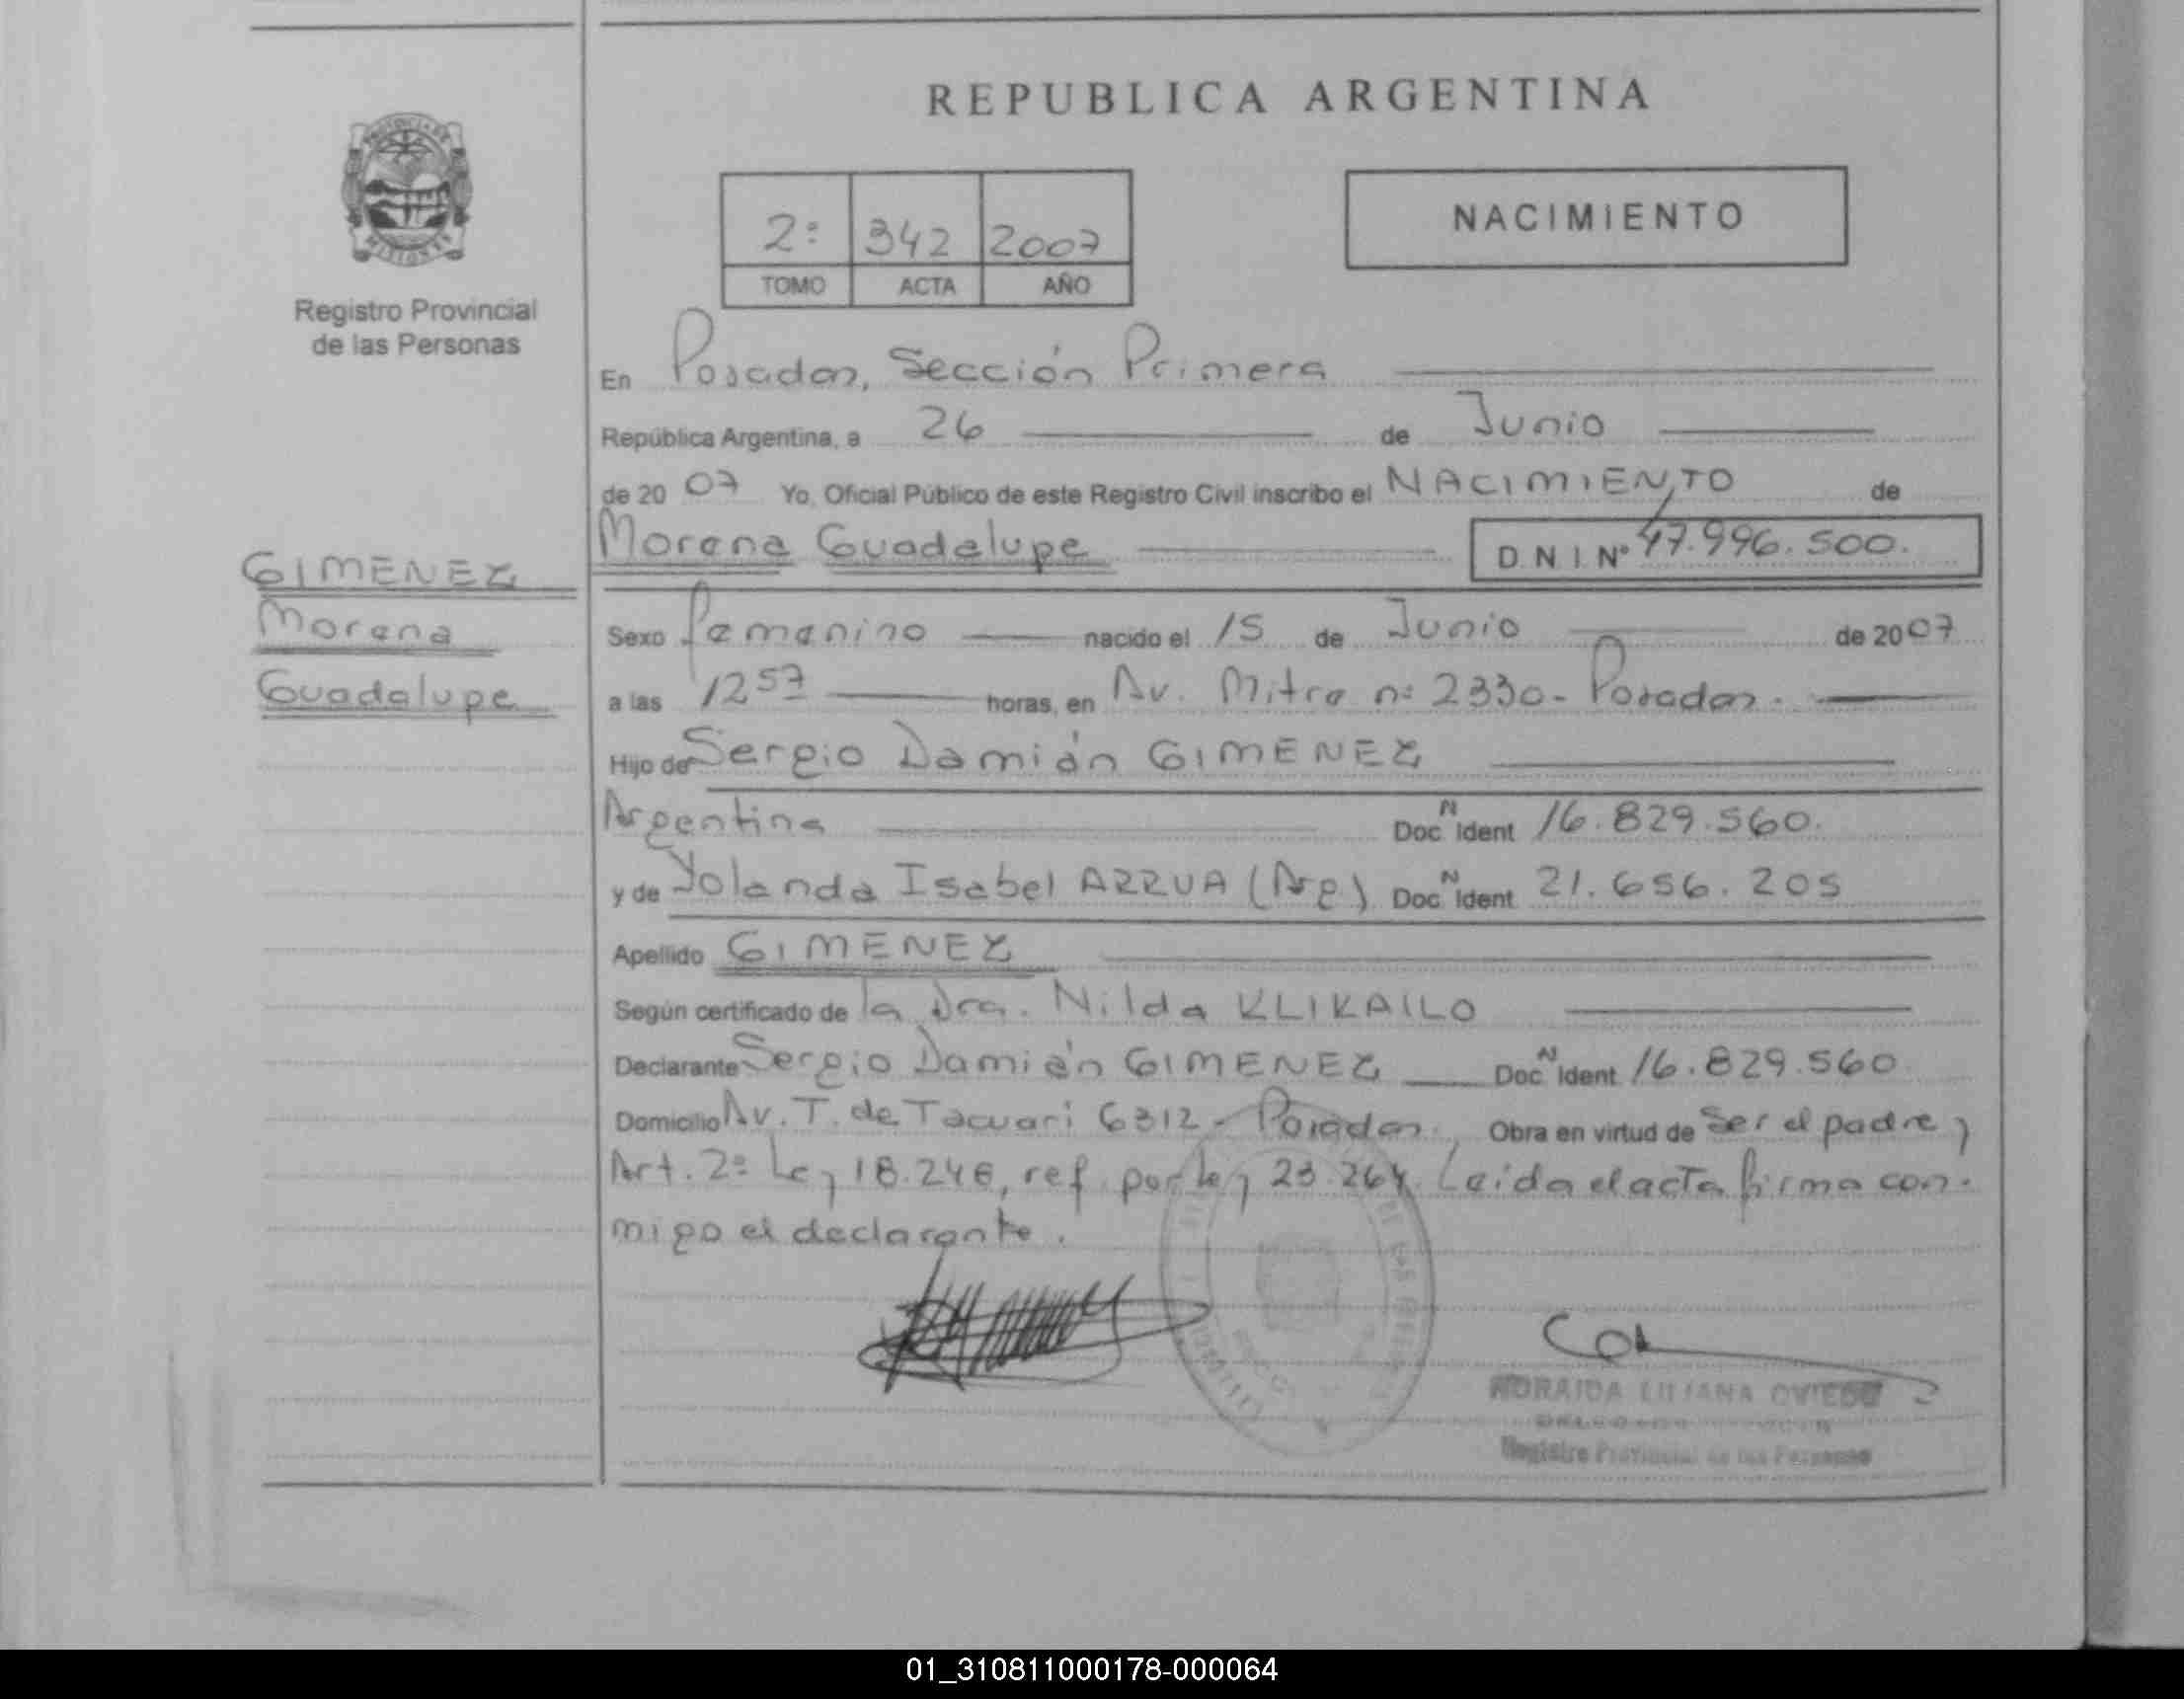 REPUBLICA ARGENTINA
2º 342 2007
TOMO ACTA AÑO
NACIMIENTO
PROVINCIA DE
MISIONES
Registro Provincial
de las Personas
GIMENEZ
Morena
Guadalupe
En Posadas, Sección Primera
República Argentina, a 26 de Junio
de 20 07 Yo, Oficial Público de este Registro Civil inscribo el NACIMIENTO de
Morena Guadalupe D.N.I. Nº 47.996.500.
Sexo femenino nacido el 15 de Junio de 20 07
a las 12 57 horas, en Av. Mitre nº 2330 - Posadas.
Hijo de Sergio Damián GIMENEZ
Argentina Doc. N Ident 16.829.560.
y de Yolanda Isabel ARRUA (Arg) Doc. N Ident 21.656.205
Apellido GIMENEZ
Según certificado de la Dra. Nilda KLIKAILO
Declarante Sergio Damián GIMENEZ Doc. N Ident 16.829.560
Domicilio Av. T. de Tacuari 6312 - Posadas. Obra en virtud de ser el padre y
Art. 2º Ley 18.248, ref. por ley 23.264. Leida el acta firma con-
migo el declarante.
NORAIDA LILIANA OVIEDO
Registro Provincial de las Personas
01_310811000178-000064